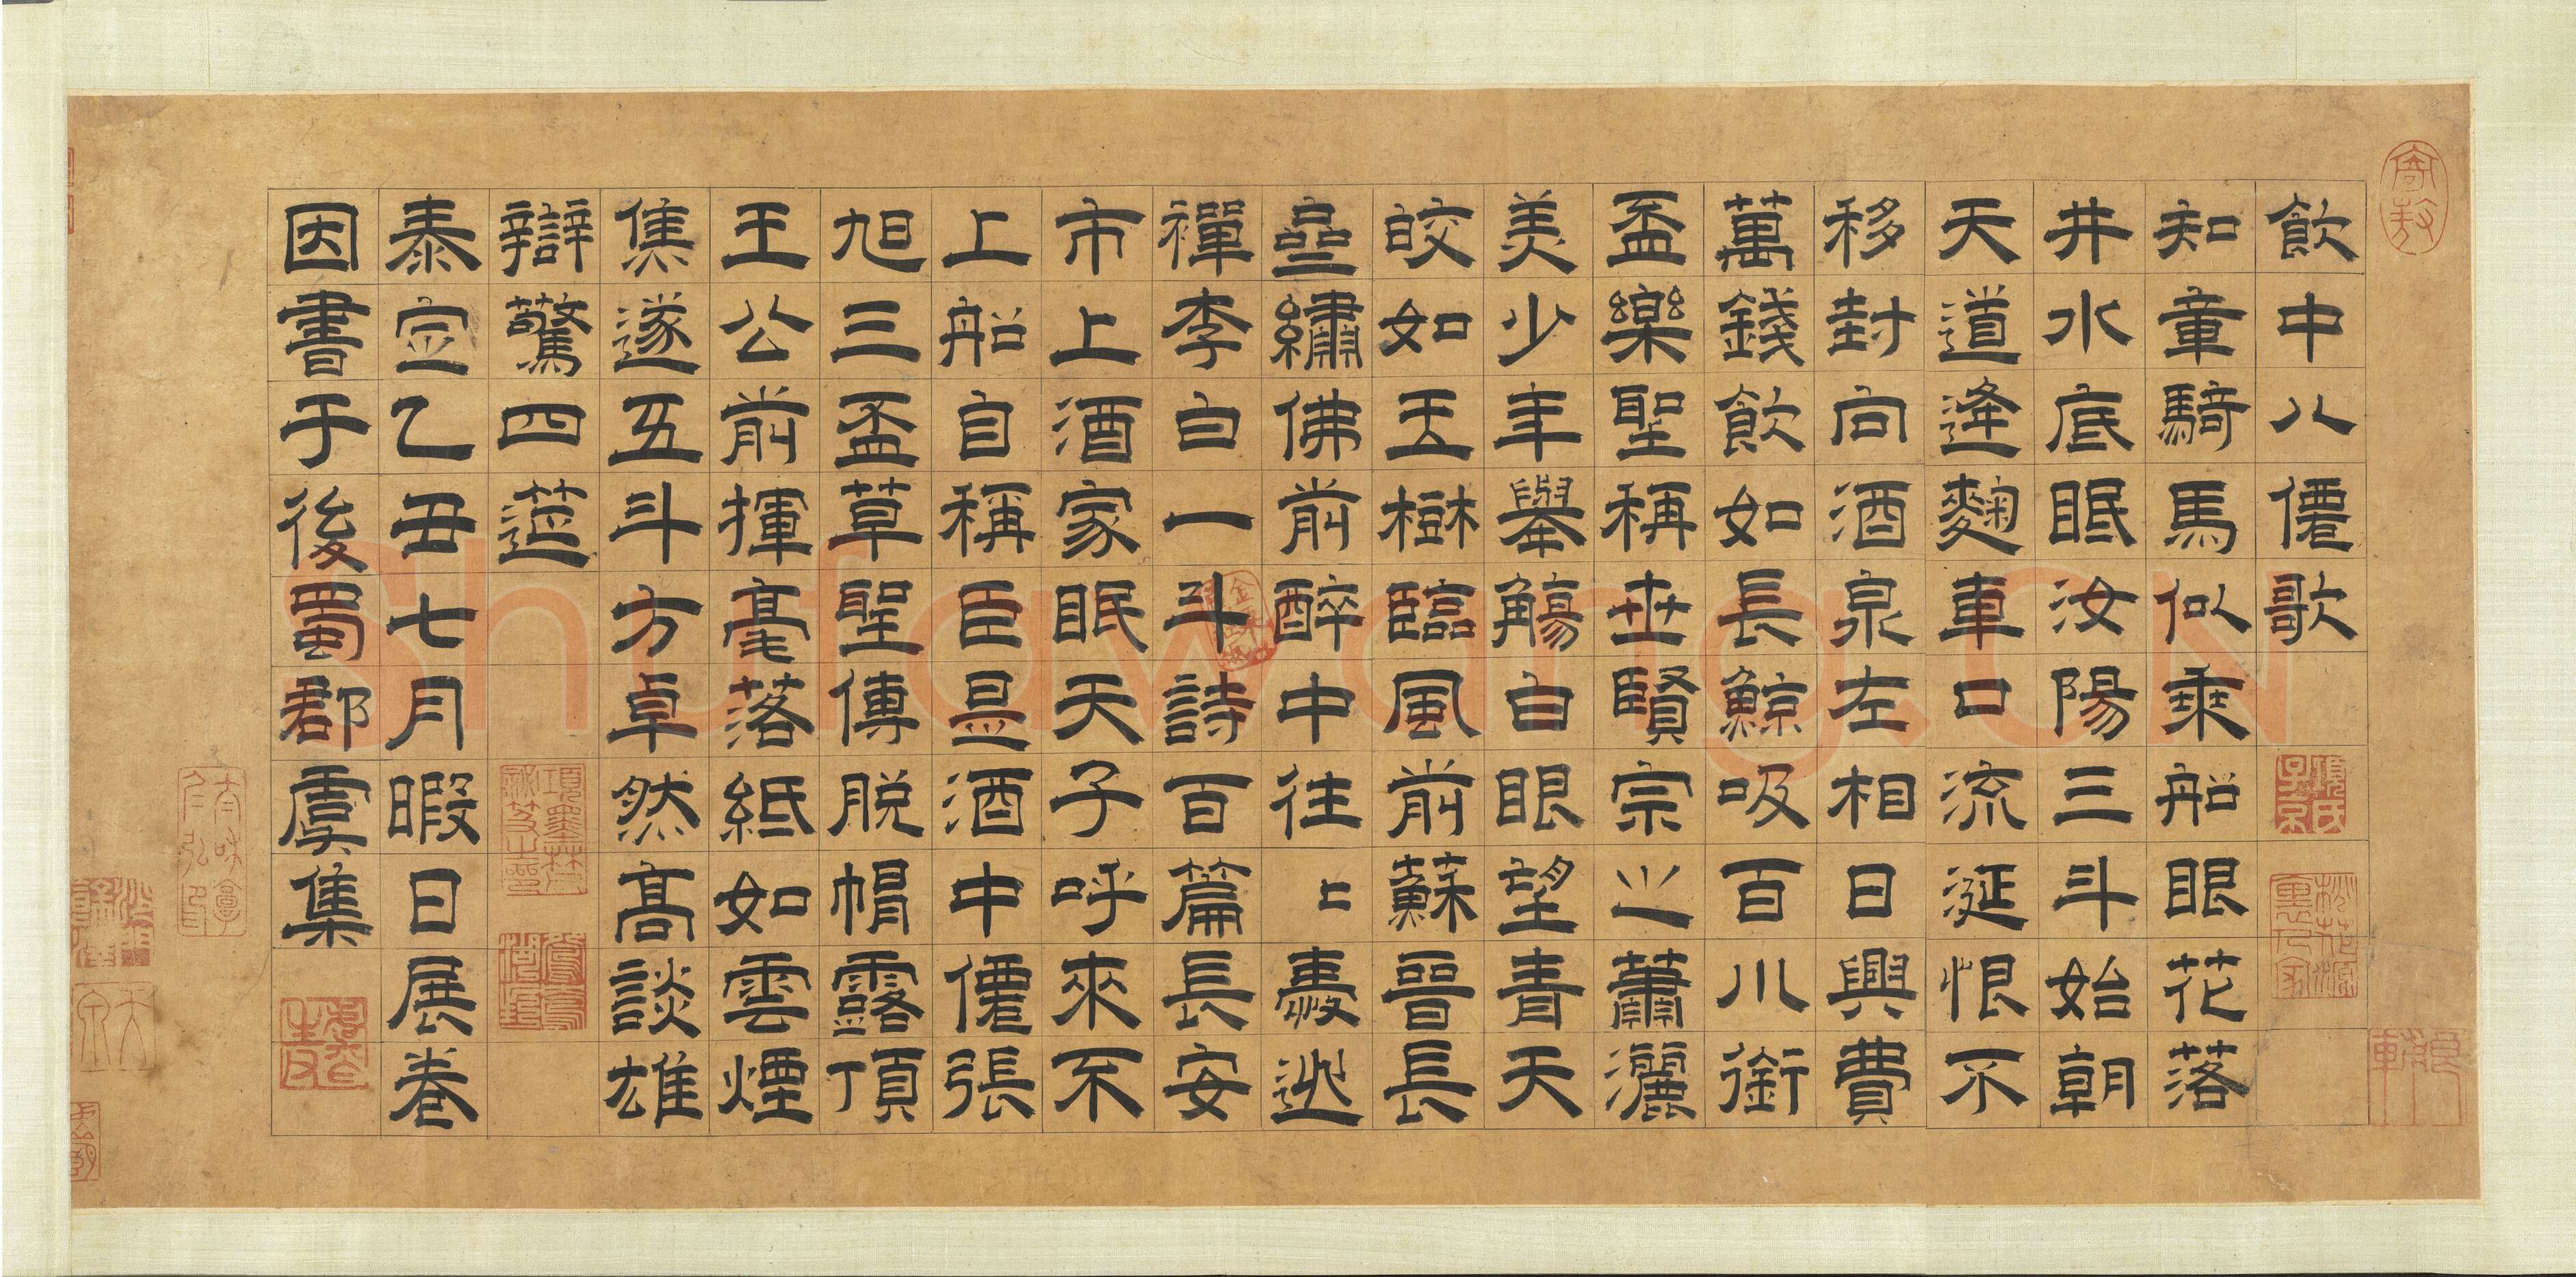 飲中八僊歌
知章騎馬似乘船眼花落
井水底眠汝陽三斗始朝
天道逢麴車口流涎恨不
移封向酒泉左相日興費
萬錢飲如長鯨吸百川銜
盃樂聖稱世賢宗之蕭灑
美少年舉觴白眼望青天
皎如玉樹臨風前蘇晉長
齋繡佛前醉中往〻愛逃
禪李白一斗詩百篇長安
市上酒家眠天子呼來不
上船自稱臣是酒中僊張
旭三盃草聖傳脫帽露頂
王公前揮毫落紙如雲煙
焦遂五斗方卓然高談雄
辯驚四筵
泰定乙丑七月暇日展卷
因書于後蜀郡虞集
項氏子京
桃花源裏人家
項墨林父祕笈之印
Shufawang.CN